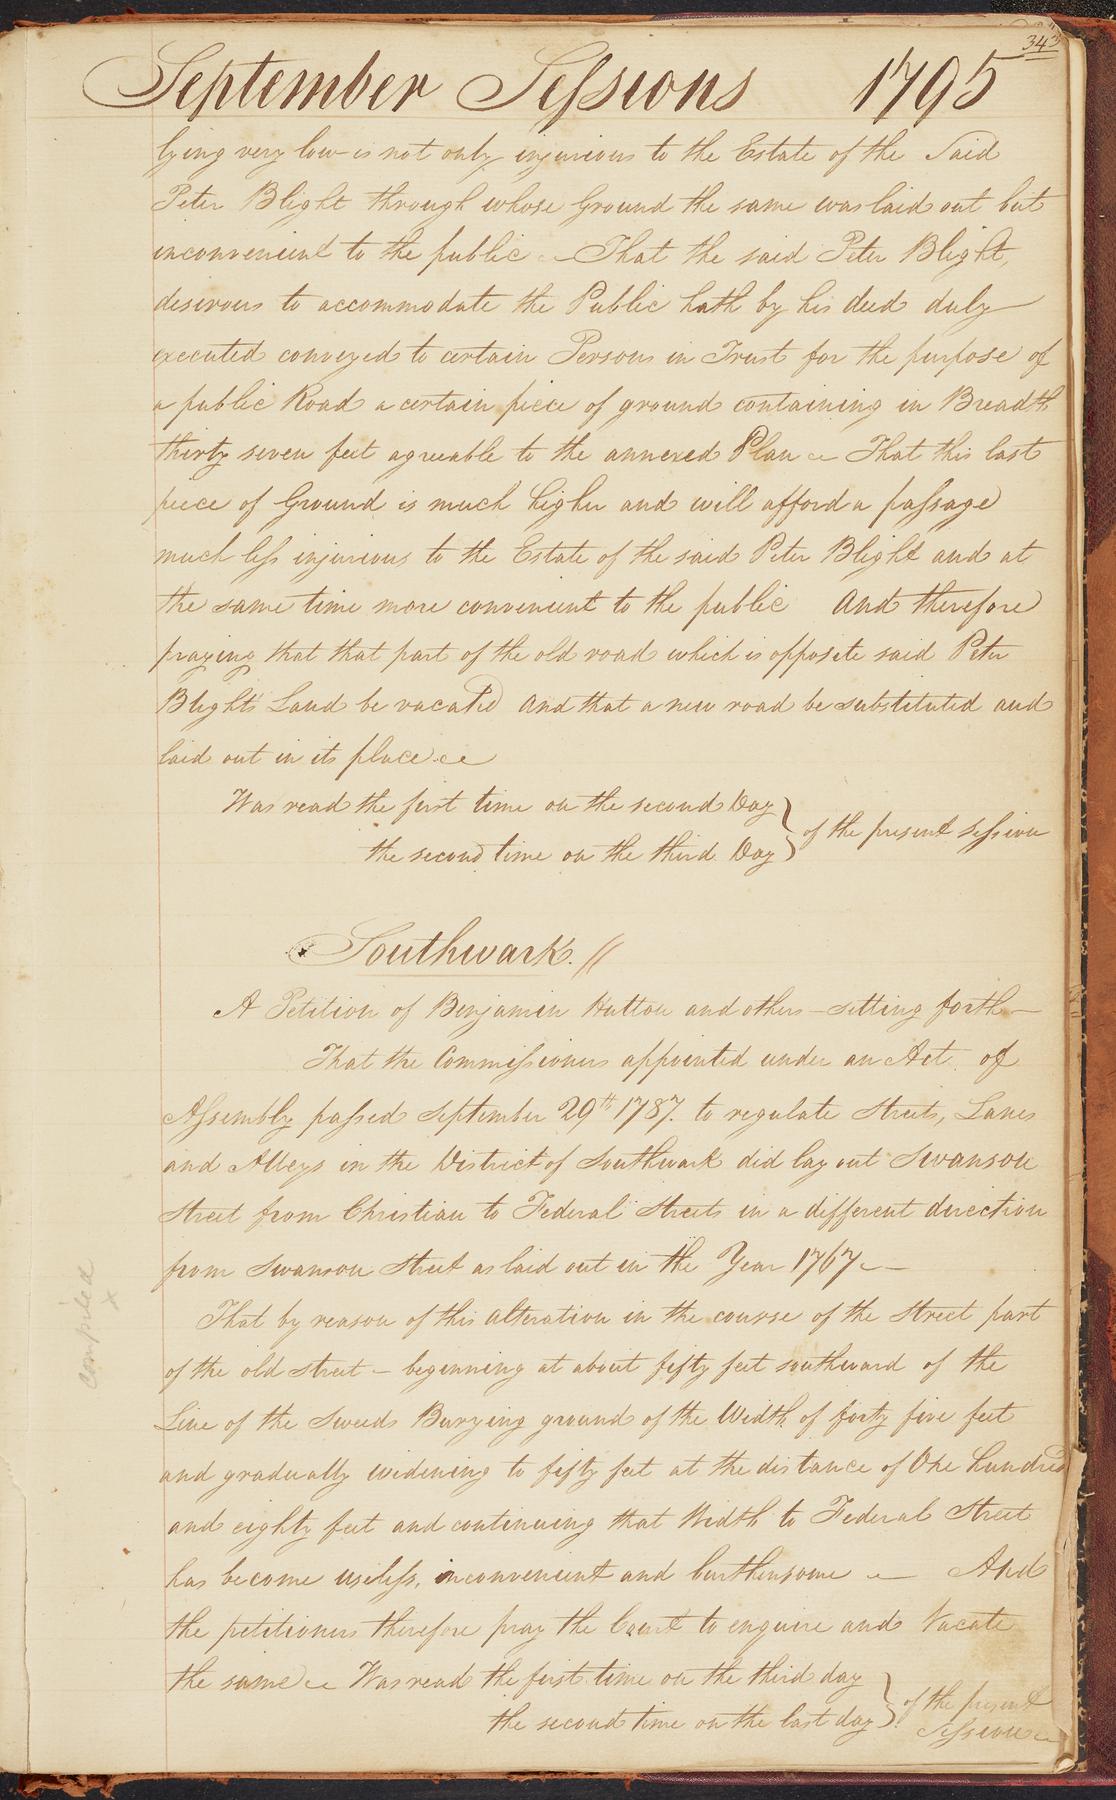 343
September Sessions 1795
lying very low is not only injurious to the Estate of the Said
Peter Blight through whose Ground the same was laid out but
inconvenient to the public — That the said Peter Blight,
desirous to accommodate the Public hath by his deed duly
executed conveyed to certain Persons in Trust for the purpose of
a public Road a certain piece of ground containing in Breadth
thirty seven feet agreable to the annexed Plan — That this last
piece of Ground is much higher and will afford a passage
much less injurious to the Estate of the said Peter Blight and at
the same time more convenient to the public And therefore
praying that that part of the old road which is opposite said Peter
Blights Land be vacated and that a new road be substituted and
laid out in its place
Was read the first time on the second Day
the second time on the third Day } of the present Session
Southwark. //
A Petition of Benjamin Hutton and others — setting forth —
That the Commissioners appointed under an Act of
Assembly passed September 29th 1787. to regulate Streets, Lanes
and Alleys in the District of Southwark did lay out Swanson
Street from Christian to Federal Streets in a different direction
from Swanson Street as laid out in the Year 1767 —
That by reason of this alteration in the course of the Street part
of the old street — beginning at about fifty feet southward of the
Line of the Sweeds Burying ground of the Width of forty five feet
and gradually widening to fifty feet at the distance of One hundred
and eighty feet and continuing that Width to Federal Street
has become useless, inconvenient and burthensome — And
the petitioners therefore pray the Court to enquire and Vacate
the same — Was read the first time on the third day
the second time on the last day } of the present
Session
compiled
x